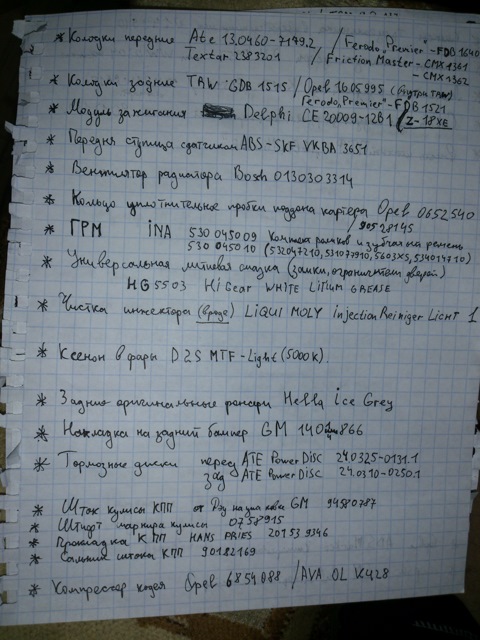 * Колодки передние Ate 13.0460-7179.2 / Ferodo „Premier" - FDB 1640
Textar 2383201 / Friction Master - CMX 1361
- CMX 1362
* Колодки задние TRW GDB 1515 / Opel 1605995 (внутри TRW)
Ferodo „Premier" - FDB 1521
* Модуль зажигания Delphi CE 20009-12B1 (Z-18XE
* Передняя ступица сдатчиком ABS - SKF VKBA 3651
* Вентилятор радиатора Bosch 0130303314
* Кольцо уплотнительное пробки поддона картера Opel 0652540
/ 90528145
* ГРМ INA 530 0450 09 Комплект роликов и зубчатый ремень
530 0450 10 (532047210, 531077910, 5603XS, 534014710)
* Универсальная литиевая смазка (замки, ограничители дверей)
HG5503 Hi Gear WHITE LITIUM GREASE
* Чистка инжектора (вроде) LIQUI MOLY Injection Reiniger Licht 1
* Ксенон в фары D2S MTF-Light (5000K).
* Задние оригинальные фонари Hella ice Grey
* Накладка на задний бампер GM 140 866
* Тормозные диски перед ATE PowerDisc 24.0325-0131.1
зад ATE PowerDisc 24.0310-0250.1
* Шток кулисы КПП от Дэу GM 94580787
* Штифт шарнира кулисы 0758915
* Прокладка КПП HANS PRIES 201 53 9346
* Сальник штока КПП 90182169
* Компрессор кондея Opel 6854088 / AVA OL K428